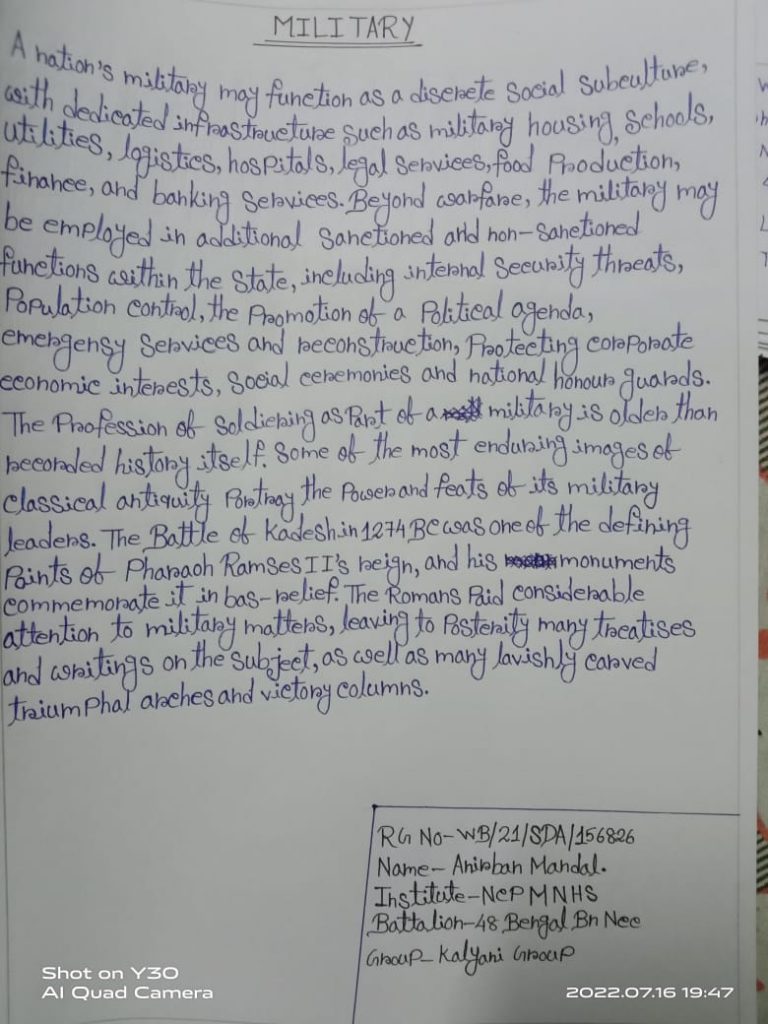 MILITARY
A nation's military may function as a discrete social subculture,
with dedicated infrastructure such as military housing, schools,
utilities, logistics, hospitals, legal services, food Production,
finance, and banking services. Beyond warfare, the military may
be employed in additional sanctioned and non-sanctioned
functions within the state, including internal security threats,
Population control, the Promotion of a Political agenda,
emergensy services and reconstruction, Protecting corporate
economic interests, social ceremonies and national honour guards.
The Profession of soldiering as Part of a military is older than
recorded history itself. Some of the most enduring images of
classical antiquity Portray the Power and feats of its military
leaders. The Battle of Kadesh in 1274 BC was one of the defining
Points of Pharaoh Ramses II's reign, and his monuments
commemorate it in bas-relief. The Romans Paid considerable
attention to military matters, leaving to Posterity many treatises
and writings on the subject, as well as many lavishly carved
triumPhal arches and victory columns.
RG No-WB/21/SDA/156826
Name- Anirban Mandal.
Institute-NCPMNHS
Battalion-48 Bengal Bn Ncc
Group- Kalyani Group
Shot on Y30
AI Quad Camera
2022.07.16 19:47